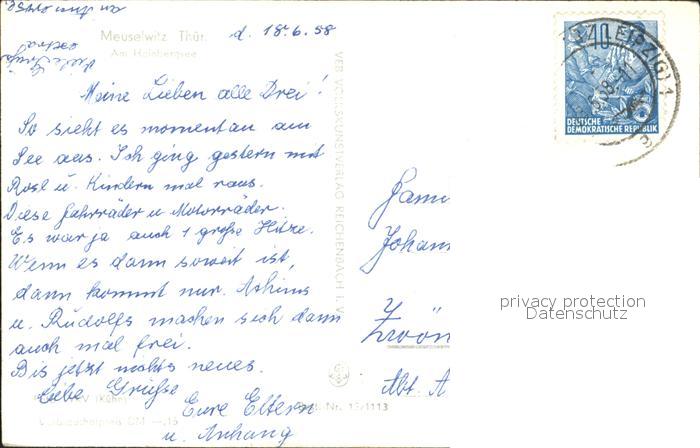 Meuselwitz Thür.
Am Hainbergsee
d. 18.6.58
Meine Lieben alle Drei!
So sieht es momentan am
See aus. Ich ging gestern mit
Rosl u. Kindern mal raus.
Diese Fahrräder u. Motorräder.
Es war ja auch 1 große Hitze.
Wenn es dann soweit ist,
dann kommt nur. Achims
u. Rudolfs machen sich dann
auch mal frei.
Bis jetzt nichts neues.
Liebe Grüße
Eure Eltern
u. Anhang
VEB VOLKSKUNSTVERLAG REICHENBACH I. V.
10
DEUTSCHE
DEMOKRATISCHE REPUBLIK
LEIPZIG
Fami
Johan
Zwön
Abt. A
privacy protection
Datenschutz